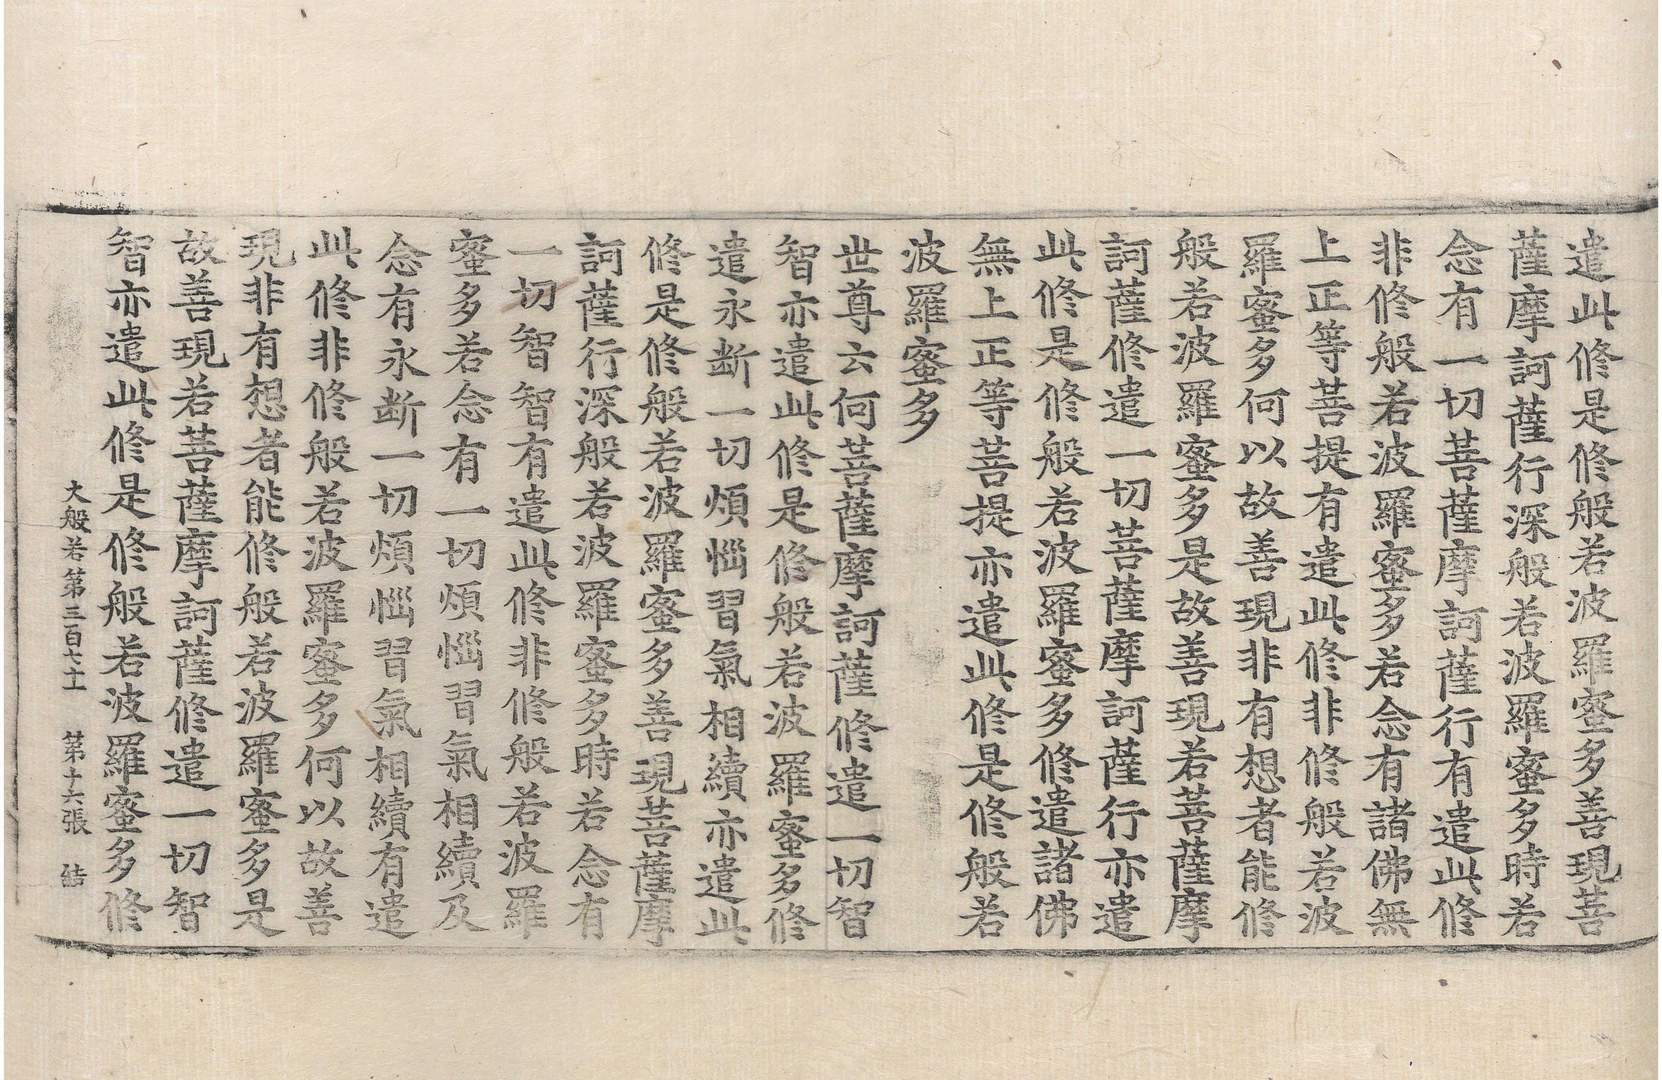 遣此修是修般若波羅蜜多善現菩
薩摩訶薩行深般若波羅蜜多時若
念有一切菩薩摩訶薩行有遣此修
非修般若波羅蜜多若念有諸佛無
上正等菩提有遣此修非修般若波
羅蜜多何以故善現非有想者能修
般若波羅蜜多是故善現若菩薩摩
訶薩修遣一切菩薩摩訶薩行亦遣
此修是修般若波羅蜜多修遣諸佛
無上正等菩提亦遣此修是修般若
波羅蜜多
世尊云何菩薩摩訶薩修遣一切智
智亦遣此修是修般若波羅蜜多修
遣永断一切煩惱習氣相續亦遣此
修是修般若波羅蜜多善現菩薩摩
訶薩行深般若波羅蜜多時若念有
一切智智有遣此修非修般若波羅
蜜多若念有一切煩惱習氣相續及
念有永断一切煩惱習氣相續有遣
此修非修般若波羅蜜多何以故善
現非有想者能修般若波羅蜜多是
故善現若菩薩摩訶薩修遣一切智
智亦遣此修是修般若波羅蜜多修
大般若第三百七十 第十六張 結